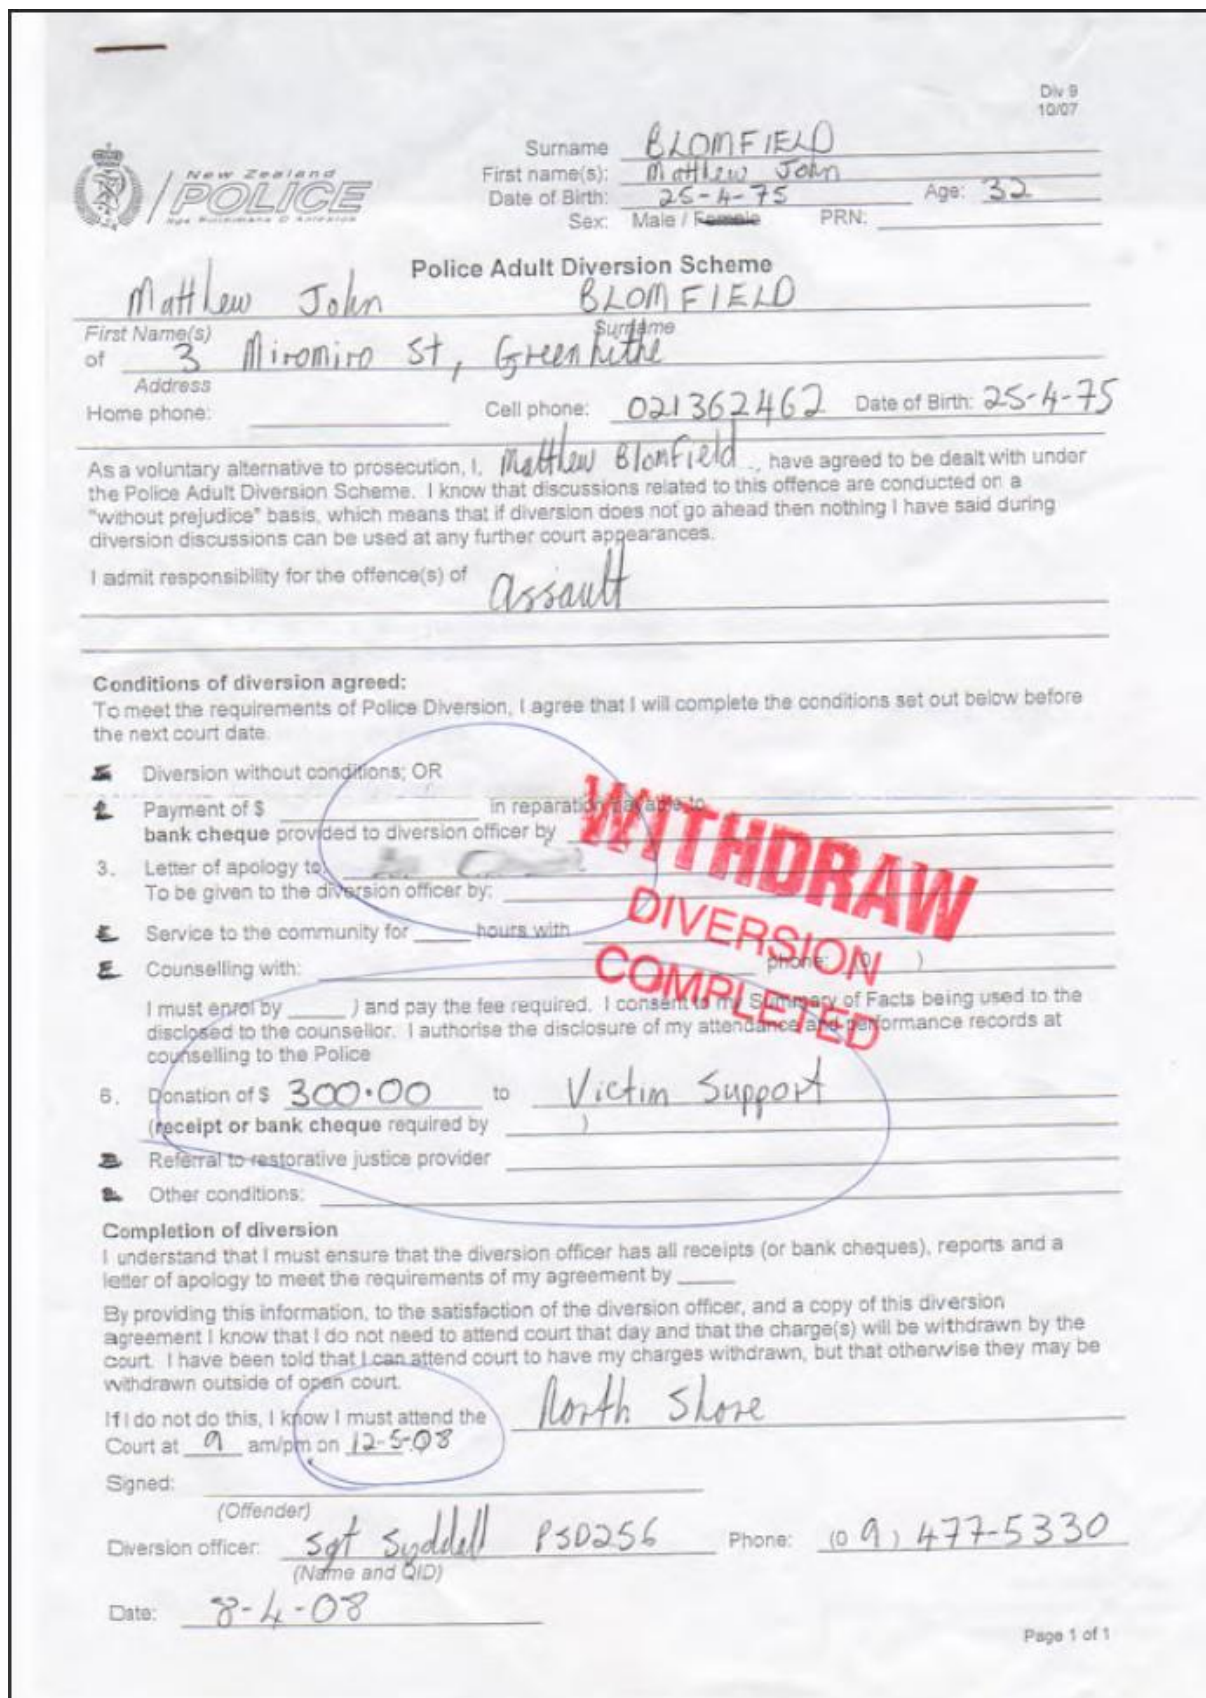 Div 9
10/07
New Zealand
POLICE
Surname BLOMFIELD
First name(s): Matthew John
Date of Birth: 25-4-75 Age: 32
Sex: Male / Female PRN:
Police Adult Diversion Scheme
Matthew John BLOMFIELD
First Name(s) Surname
of 3 Miromiro St, Greenhithe
Address
Home phone: Cell phone: 021362462 Date of Birth: 25-4-75
As a voluntary alternative to prosecution, I, Matthew Blomfield, have agreed to be dealt with under
the Police Adult Diversion Scheme. I know that discussions related to this offence are conducted on a
"without prejudice" basis, which means that if diversion does not go ahead then nothing I have said during
diversion discussions can be used at any further court appearances.
I admit responsibility for the offence(s) of assault
Conditions of diversion agreed:
To meet the requirements of Police Diversion, I agree that I will complete the conditions set out below before
the next court date.
Diversion without conditions; OR
Payment of $ in reparation payable to
bank cheque provided to diversion officer by
3. Letter of apology to:
To be given to the diversion officer by:
Service to the community for hours with
Counselling with: phone: (0 )
I must enrol by ) and pay the fee required. I consent to my Summary of Facts being used to the
disclosed to the counsellor. I authorise the disclosure of my attendance and performance records at
counselling to the Police
WITHDRAW
DIVERSION
COMPLETED
6. Donation of $ 300.00 to Victim Support
(receipt or bank cheque required by )
Referral to restorative justice provider
Other conditions:
Completion of diversion
I understand that I must ensure that the diversion officer has all receipts (or bank cheques), reports and a
letter of apology to meet the requirements of my agreement by
By providing this information, to the satisfaction of the diversion officer, and a copy of this diversion
agreement I know that I do not need to attend court that day and that the charge(s) will be withdrawn by the
court. I have been told that I can attend court to have my charges withdrawn, but that otherwise they may be
withdrawn outside of open court.
If I do not do this, I know I must attend the North Shore
Court at 9 am/pm on 12-5-08
Signed:
(Offender)
Diversion officer: Sgt Syddell PSD256 Phone: (09) 477-5330
(Name and QID)
Date: 8-4-08
Page 1 of 1